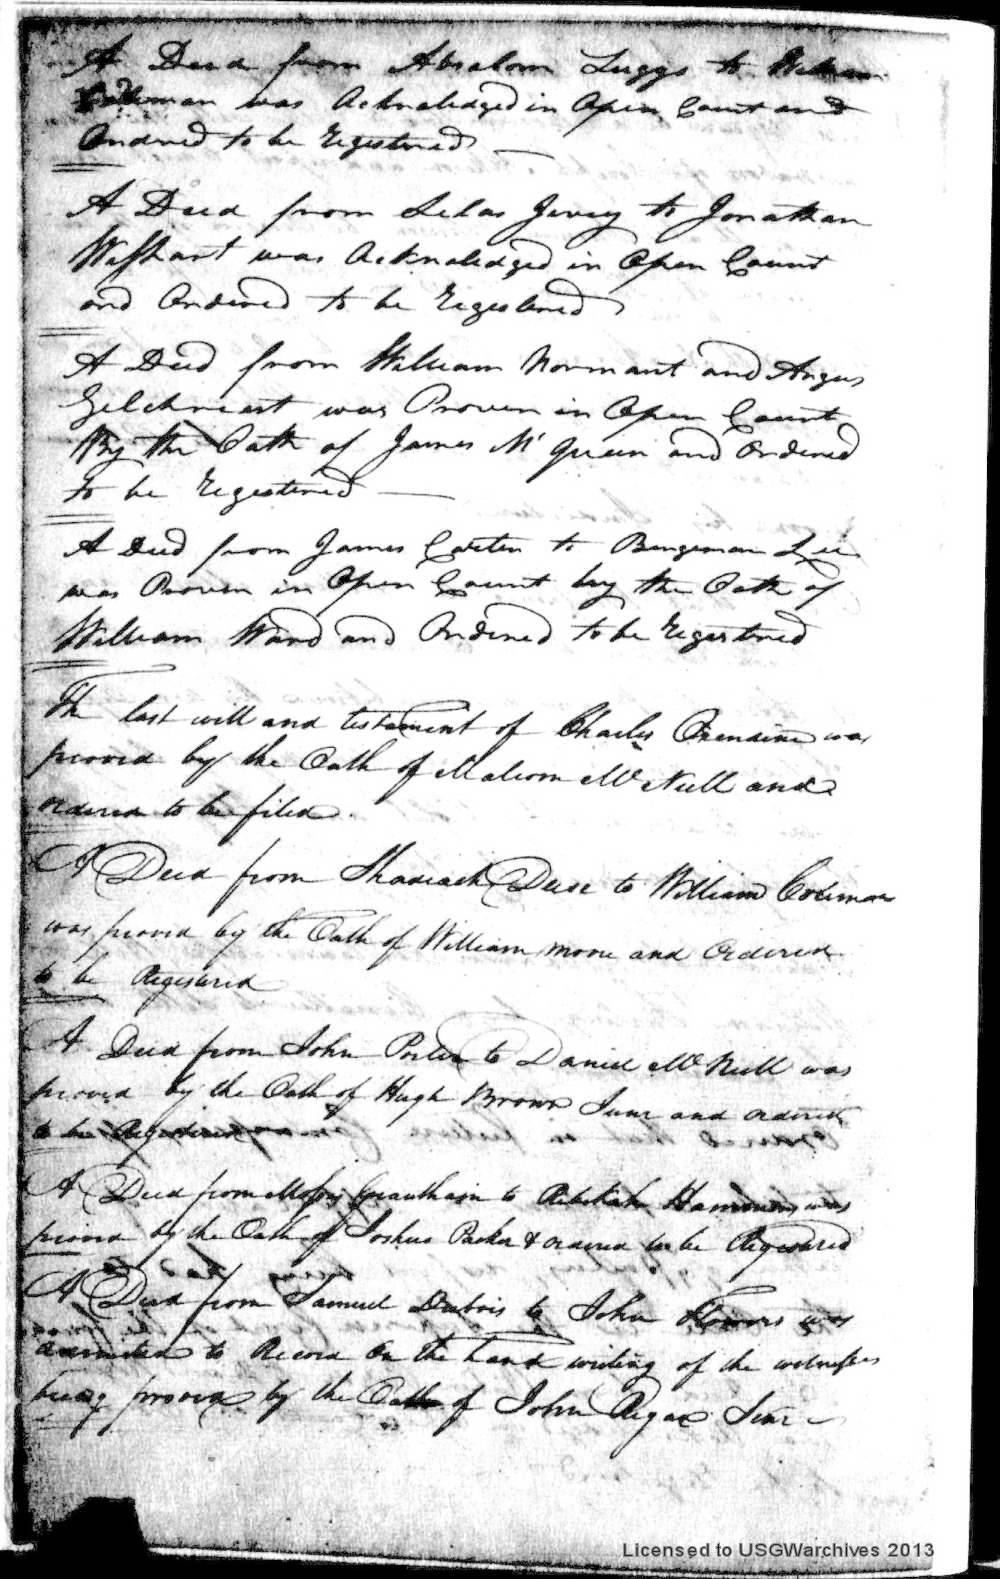 A Deed from Absalom Suggs to William
Coleman was Acknaledged in Open Court and
Ordered to be Registered
A Deed from Silas Jivey to Jonathan
Wishart was Acknaledged in Open Court
and Ordered to be Registered
A Deed from William Normant and Angus
Gilchreast was Proven in Open Court
By the Oath of James Mc Queen and Ordered
to be Registered
A Deed from James Carter to Bengeman Lee
was Proven in Open Court by the Oath of
William Ward and Ordered to be Registered
The last will and testament of Charles Oxendine was
proved by the Oath of Malcom Mc Neill and
ordered to be filed.
A Deed from Shadrach Deese to William Coleman
was proved by the Oath of William Moore and Ordered
to be Registered
A Deed from John Porter to Daniel McNeill was
proved by the Oath of Hugh Brown Junr and ordered
to be Registered
A Deed from Grantham to Rebekah Hammons was
proved by the Oath of Joshua Parker & ordered to be Registered
A Deed from Samuel Dubois to John Flowers was
admitted to Record on the hand writing of the witnesses
being proved by the Oath of John Regan Senr
Licensed to USGWarchives 2013